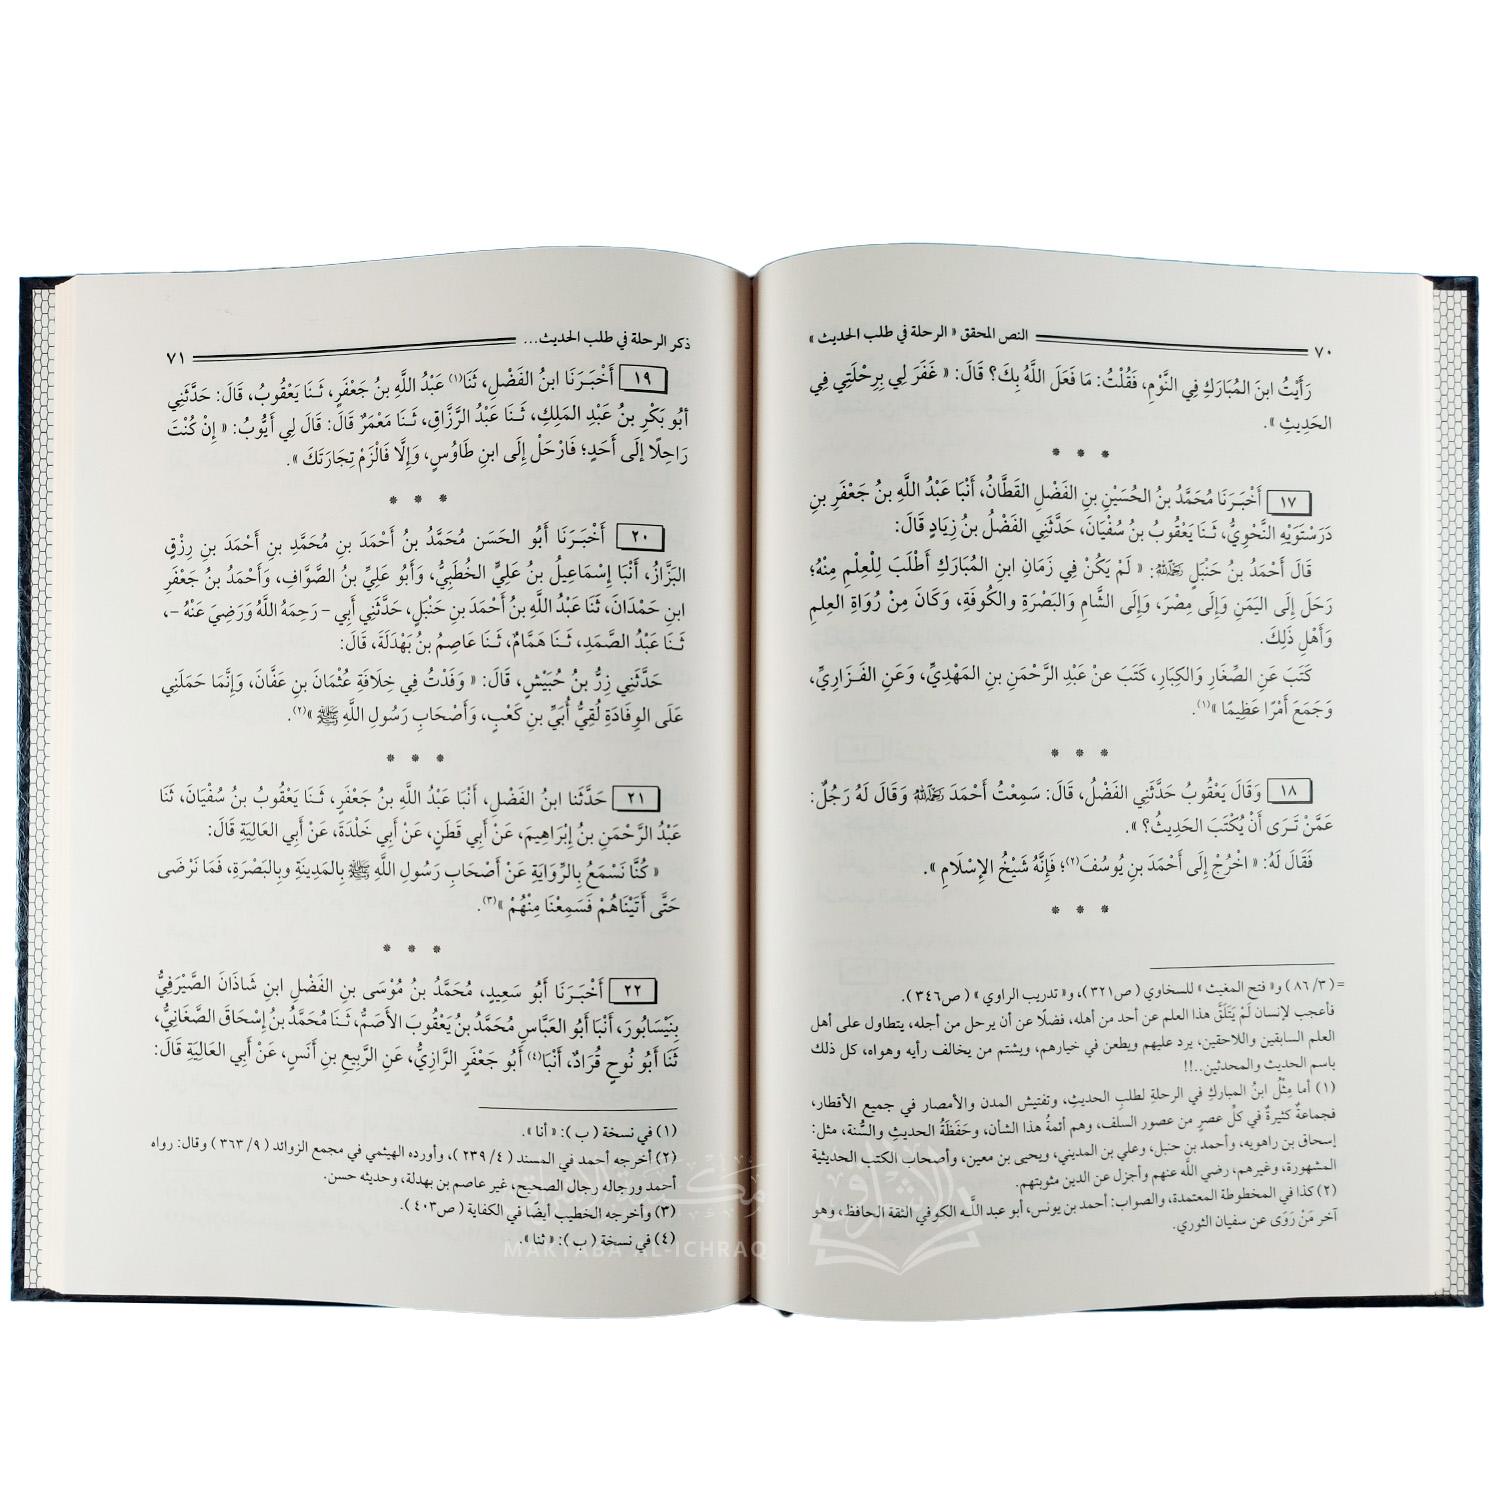 ٧٠ النص المحقق « الرحلة في طلب الحديث »
رَأَيْتُ ابنَ المُبَارَكِ فِي النَّوْمِ، فَقُلْتُ: مَا فَعَلَ اللَّهُ بِكَ؟ قَالَ: « غَفَرَ لِي بِرِحْلَتِي فِي
الحَدِيثِ ».
* * *
١٧ أَخْبَرَنَا مُحَمَّدُ بنُ الحُسَيْنِ بنِ الفَضْلِ القَطَّانُ، أَنْبَا عَبْدُ اللَّهِ بنُ جَعْفَرِ بنِ
دَرَسْتَوَيْهِ النَّحْوِيُّ، ثَنَا يَعْقُوبُ بنُ سُفْيَانَ، حَدَّثَنِي الفَضْلُ بنُ زِيَادٍ قَالَ:
قَالَ أَحْمَدُ بنُ حَنْبَلٍ رَحِمَهُ اللَّهُ: « لَمْ يَكُنْ فِي زَمَانِ ابنِ المُبَارَكِ أَطْلَبَ لِلْعِلْمِ مِنْهُ؛
رَحَلَ إِلَى اليَمَنِ وَإِلَى مِصْرَ، وَإِلَى الشَّامِ وَالبَصْرَةِ والكُوفَةِ، وَكَانَ مِنْ رُوَاةِ العِلمِ
وَأَهْلِ ذَلِكَ.
كَتَبَ عَنِ الصِّغَارِ وَالكِبَارِ، كَتَبَ عَنْ عَبْدِ الرَّحْمَنِ بنِ المَهْدِيِّ، وَعَنِ الفَزَارِيِّ،
وَجَمَعَ أَمْرًا عَظِيمًا »(١).
* * *
١٨ وَقَالَ يَعْقُوبُ حَدَّثَنِي الفَضْلُ، قَالَ: سَمِعْتُ أَحْمَدَ رَحِمَهُ اللَّهُ وَقَالَ لَهُ رَجُلٌ:
عَمَّنْ تَرَى أَنْ يُكْتَبَ الحَدِيثُ؟ ».
فَقَالَ لَهُ: « اخْرُجْ إِلَى أَحْمَدَ بنِ يُوسُفَ(٢)؛ فَإِنَّهُ شَيْخُ الإِسْلَامِ ».
* * *
= (٣/ ٨٦) و« فتح المغيث » للسخاوي (ص٣٢١)، و« تدريب الراوي » (ص٣٤٦).
فأعجب لإنسان لَمْ يَتَلَقَّ هذا العلم عن أحد من أهله، فضلًا عن أن يرحل من أجله، يتطاول على أهل
العلم السابقين واللاحقين، يرد عليهم ويطعن في خيارهم، ويشتم من يخالف رأيه وهواه، كل ذلك
باسم الحديث والمحدثين..!!
(١) أما مِثْلُ ابنُ المبارك في الرحلةِ لطلبِ الحديثِ، وتفتيش المدن والأمصار في جميع الأقطار،
فجماعةٌ كثيرةٌ في كلِّ عصرٍ من عصور السلف، وهم أئمةُ هذا الشأن، وحَفَظَةُ الحديثِ والسُّنة، مثل:
إسحاق بن راهويه، وأحمد بن حنبل، وعلي بن المديني، ويحيى بن معين، وأصحاب الكتب الحديثية
المشهورة، وغيرهم، رضي اللَّه عنهم وأجزل عن الدين مثوبتهم.
(٢) كذا في المخطوطة المعتمدة، والصواب: أحمد بن يونس، أبو عبد اللَّه الكوفي الثقة الحافظ، وهو
آخر مَنْ رَوَى عن سفيان الثوري.
ذكر الرحلة في طلب الحديث... ٧١
١٩ أَخْبَرَنَا ابنُ الفَضْلِ، ثَنَا(١) عَبْدُ اللَّهِ بنُ جَعْفَرٍ، ثَنَا يَعْقُوبُ، قَالَ: حَدَّثَنِي
أبُو بَكْرِ بنُ عَبْدِ المَلِكِ، ثَنَا عَبْدُ الرَّزَّاقِ، ثَنَا مَعْمَرٌ قَالَ: قَالَ لِي أَيُّوبُ: « إِنْ كُنْتَ
رَاحِلًا إلَى أَحَدٍ؛ فَارْحَلْ إِلَى ابنِ طَاوُسٍ، وَإِلَّا فَالْزَمْ تِجَارَتَكَ ».
* * *
٢٠ أَخْبَرَنَا أَبُو الحَسَن مُحَمَّدُ بنُ أَحْمَدَ بنِ مُحَمَّدِ بنِ أَحْمَدَ بنِ رِزْقٍ
البَزَّازُ، أَنْبَا إِسْمَاعِيلُ بنُ عَلِيٍّ الخُطَبِيُّ، وَأَبُو عَلِيِّ بنُ الصَّوَّافِ، وَأَحْمَدُ بنُ جَعْفَرِ
ابنِ حَمْدَانَ، ثَنَا عَبْدُ اللَّهِ بنُ أَحْمَدَ بنِ حَنْبَلٍ، حَدَّثَنِي أَبِي – رَحِمَهُ اللَّهُ وَرَضِيَ عَنْهُ –،
ثَنَا عَبْدُ الصَّمَدِ، ثَنَا هَمَّامٌ، ثَنَا عَاصِمُ بنُ بَهْدَلَةَ، قَالَ:
حَدَّثَنِي زِرُّ بنُ حُبَيْشٍ، قَالَ: « وَفَدْتُ فِي خِلَافَةِ عُثْمَانَ بنِ عَفَّانَ، وَإِنَّمَا حَمَلَنِي
عَلَى الوِفَادَةِ لُقِيُّ أُبَيِّ بنِ كَعْبٍ، وَأَصْحَابِ رَسُولِ اللَّهِ ﷺ »(٢).
* * *
٢١ حَدَّثَنا ابنُ الفَضْلِ، أَنْبَا عَبْدُ اللَّهِ بنُ جَعْفَرٍ، ثَنَا يَعْقُوبُ بنُ سُفْيَانَ، ثَنَا
عَبْدُ الرَّحْمَنِ بنُ إِبْرَاهِيمَ، عَنْ أَبِي قَطَنٍ، عَنْ أَبِي خَلْدَةَ، عَنْ أَبِي العَالِيَةِ قَالَ:
« كُنَّا نَسْمَعُ بِالرِّوَايَةِ عَنْ أَصْحَابِ رَسُولِ اللَّهِ ﷺ بِالمَدِينَةِ وبِالبَصْرَةِ، فَمَا نَرْضَى
حَتَّى أَتَيْنَاهُمْ فَسَمِعْنَا مِنْهُمْ »(٣).
* * *
٢٢ أَخْبَرَنَا أَبُو سَعِيدٍ، مُحَمَّدُ بنُ مُوْسَى بنِ الفَضْلِ ابنِ شَاذَانَ الصَّيْرَفِيُّ
بِنَيْسَابُورَ، أَنْبَا أَبُو العَبَّاسِ مُحَمَّدُ بنُ يَعْقُوبَ الأَصَمُّ، ثَنَا مُحَمَّدُ بنُ إِسْحَاقَ الصَّغَانِيُّ،
ثَنَا أَبُو نُوحٍ قُرَادٌ، أَنْبَا(٤) أَبُو جَعْفَرٍ الرَّازِيُّ، عَنِ الرَّبِيعِ بنِ أَنَسٍ، عَنْ أَبِي العَالِيَةِ قَالَ:
(١) في نسخة ( ب ): « أنا ».
(٢) أخرجه أحمد في المسند (٤/ ٢٣٩)، وأورده الهيثمي في مجمع الزوائد (٩/ ٣٦٣) وقال: رواه
أحمد ورجاله رجال الصحيح، غير عاصم بن بهدلة، وحديثه حسن.
(٣) وأخرجه الخطيب أيضًا في الكفاية (ص٤٠٣).
(٤) في نسخة ( ب ): « ثنا ».
مكتبة الإشراق
MAKTABA AL-ICHRAQ